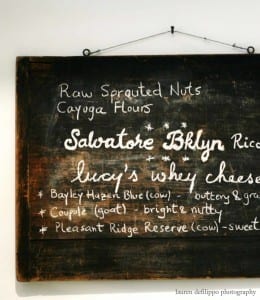 Raw Sprouted Nuts
Cayuga Flours
Salvatore Bklyn Rico
lucy's whey cheese
* Bayley Hazen Blue (cow) - buttery & gra
* Coupole (goat) - bright & nutty
* Pleasant Ridge Reserve (cow) - sweet
lauren defilippo photography